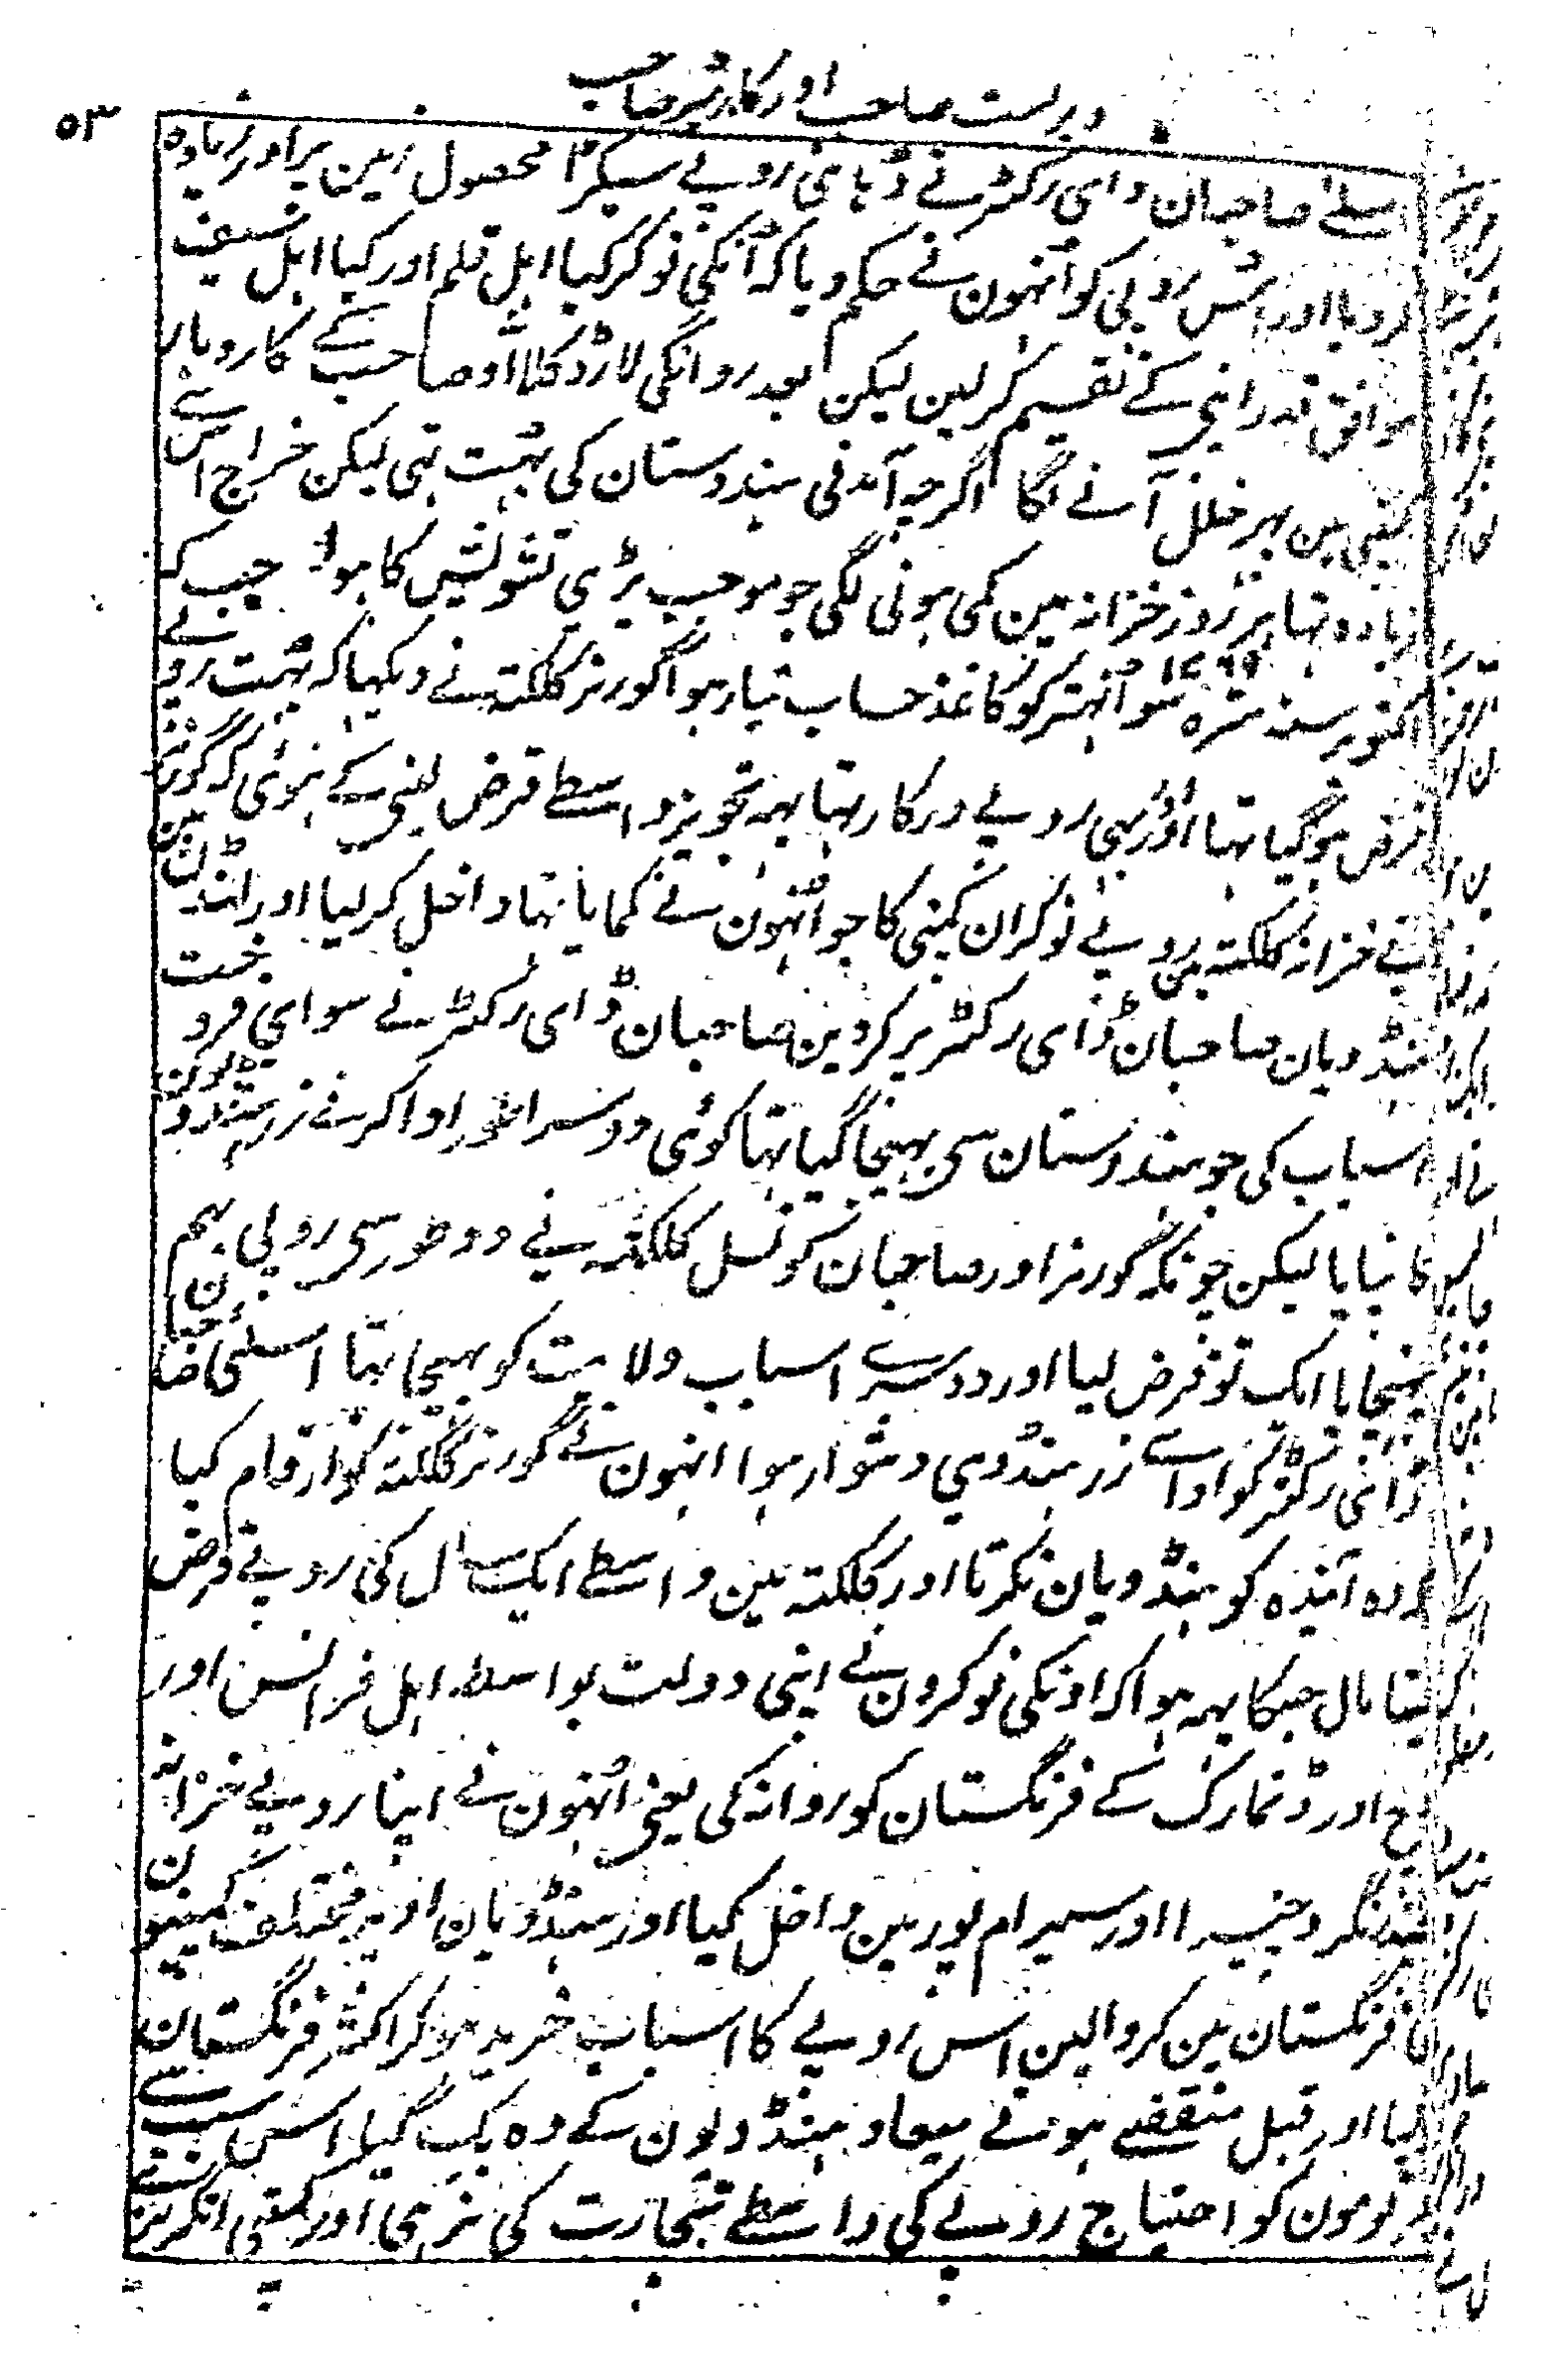 ویرلست صاحب اور کارٹیر صاحب
۵۳
اسلئے صاحبان ڈای رکٹر نے ڈہائی روپے سیکڑا محصول زمین پر اور زیادہ
کر دیا اور اس روپی کو اُنہون نے حکم دیا کہ اُنکی نوکر کیا اہل قلم اور کیا اہل سیف
موافق قدر اپنی کے تقسیم کر لین لیکن بعد روانگی لارڈ کلااو صاحب کے کاروبار
کمپنی مین پہر خلل آنے لگا اگرچہ آمدنی ہندوستان کی بہت تہی لیکن خراج اس سے
زیادہ تہا ہر روز خزانہ مین کمی ہونی لگی جو موجب بڑی تشویش کا ہوا جب کہ
اکتوبر سنہ سترہ سو اُنہتر کو کاغذ حساب تیار ہوا گورنر کلکتہ نے دیکہا کہ بہت روپے
قرض ہو گیا تہا اور بہی روپے درکار تہا یہہ تجویز واسطے قرض لینی کے ہوئی کہ گورنر
نے خزانہ کلکتہ مین روپے نوکران کمپنی کا جو اُنہون نے کمایا تہا داخل کر لیا اور لنڈن مین
ہنڈویان صاحبان ڈای رکٹر پر کر دین صاحبان ڈای رکٹر نے سوای فروخت
اسباب کی جو ہندوستان سی بہیجا گیا تہا کوئی دوسرا طور ادا کرنے زر ہنڈویون
کا نپایا لیکن چونکہ گورنر اور صاحبان کونسل کلکتہ نے دو طور سی روپی بہم
پہنچایا ایک تو قرض لیا اور دوسرے اسباب ولایت کو بہیجا تہا اسلئی صاحبان
ڈای رکٹر کو ادائے زر ہنڈوی دشوار ہوا انہون نے گورنر کلکتہ کو ارقام کیا
کہ وہ آئندہ کو ہنڈویان نکرتا اور کلکتہ مین واسطے ایک سال کی روپے قرض
لیتا مال جسکا یہہ ہوا کہ اونکی نوکرون نے اپنی دولت بواسطہ اہل فرانس اور
ڈچ اور ڈنمارک کے فرنگستان کو روانہ کی یعنی اُنہون نے اپنا روپے خزانہ
چندنگر و چنسرا اور سیرام پور مین داخل کیا اور ہنڈویان اوپر مختلف کمپنیون
کا فرنگستان مین کروالین اس روپے کا اسباب خرید ہو کر اکثر فرنگستان سے
گیا اور قبل منقضے ہونے میعاد ہنڈویون کے وہ بک گیا اس سبب سے
اور قومون کو احتیاج روپے کی واسطے تجارت کی نرہی اور کمپنی انگریز